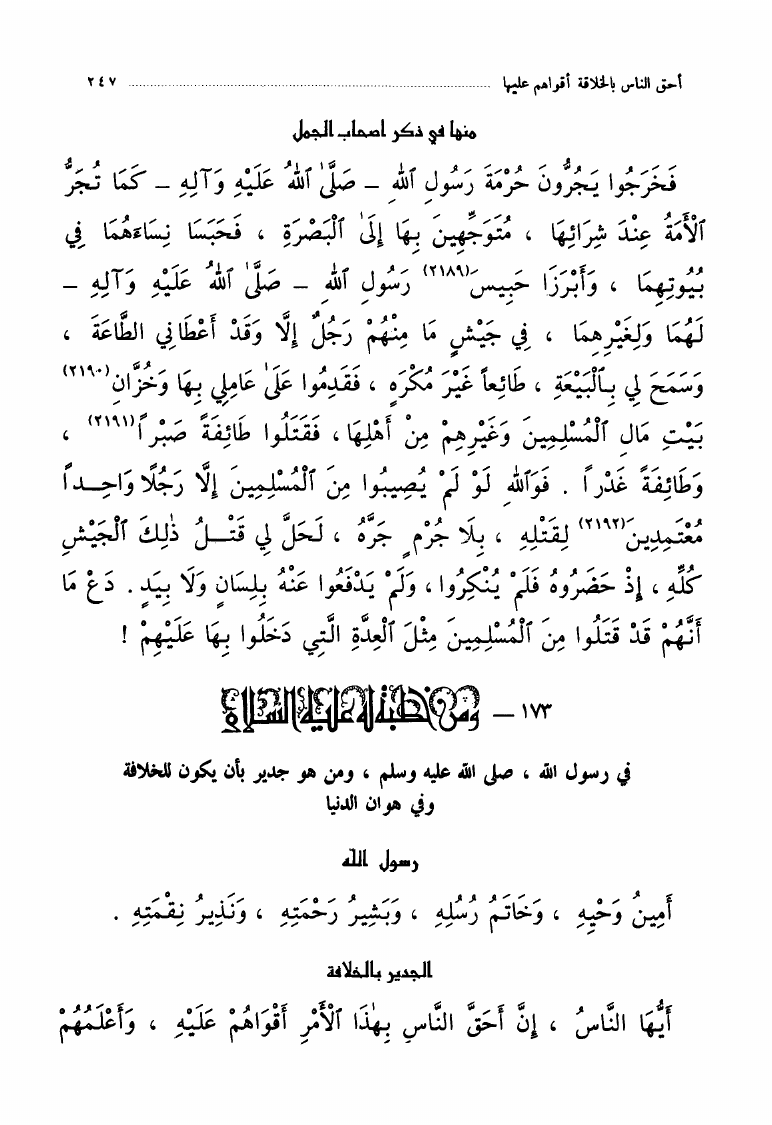 أحق الناس بالخلاقة أقواهم عليها ........ ٢٤٧
منها في ذكر اصحاب الجمل
فَخَرَجُوا يَجُرُّونَ حُرْمَةَ رَسُولِ ٱللهِ – صَلَّىٰ ٱللهُ عَلَيْهِ وَآلِهِ – كَمَا تُجَرُّ
ٱلْأَمَةُ عِنْدَ شِرَائِهَا ، مُتَوَجِّهِينَ بِهَا إِلَىٰ ٱلْبَصْرَةِ ، فَحَبَسَا نِسَاءَهُمَا فِي
بُيُوتِهِمَا ، وَأَبْرَزَا حَبِيسَ(٢١٨٩) رَسُولِ ٱللهِ – صَلَّىٰ ٱللهُ عَلَيْهِ وَآلِهِ –
لَهُمَا وَلِغَيْرِهِمَا ، فِي جَيْشٍ مَا مِنْهُمْ رَجُلٌ إِلَّا وَقَدْ أَعْطَانِي الطَّاعَةَ ،
وَسَمَحَ لِي بِٱلْبَيْعَةِ ، طَائِعاً غَيْرَ مُكْرَهٍ ، فَقَدِمُوا عَلَىٰ عَامِلِي بِهَا وَخُزَّانِ(٢١٩٠)
بَيْتِ مَالِ ٱلْمُسْلِمِينَ وَغَيْرِهِمْ مِنْ أَهْلِهَا ، فَقَتَلُوا طَائِفَةً صَبْراً(٢١٩١) ،
وَطَائِفَةً غَدْراً . فَوَٱللهِ لَوْ لَمْ يُصِيبُوا مِنَ ٱلْمُسْلِمِينَ إِلَّا رَجُلًا وَاحِـداً
مُعْتَمِدِينَ(٢١٩٢) لِقَتْلِهِ ، بِلَا جُرْمٍ جَرَّهُ ، لَحَلَّ لِي قَتْـلُ ذٰلِكَ ٱلْجَيْشِ
كُلِّهِ ، إِذْ حَضَرُوهُ فَلَمْ يُنْكِرُوا ، وَلَمْ يَدْفَعُوا عَنْهُ بِلِسَانٍ وَلَا بِيَدٍ . دَعْ مَا
أَنَّهُمْ قَدْ قَتَلُوا مِنَ ٱلْمُسْلِمِينَ مِثْلَ ٱلْعِدَّةِ الَّتِي دَخَلُوا بِهَا عَلَيْهِمْ !
١٧٣ – ومن خطبة له عليه السلام
في رسول الله ، صلى الله عليه وسلم ، ومن هو جدير بأن يكون للخلافة
وفي هوان الدنيا
رسول الله
أَمِينُ وَحْيِهِ ، وَخَاتَمُ رُسُلِهِ ، وَبَشِيرُ رَحْمَتِهِ ، وَنَذِيرُ نِقْمَتِهِ .
الجدير بالخلافة
أَيُّهَا النَّاسُ ، إِنَّ أَحَقَّ النَّاسِ بِهٰذَا ٱلْأَمْرِ أَقْوَاهُمْ عَلَيْهِ ، وَأَعْلَمُهُمْ